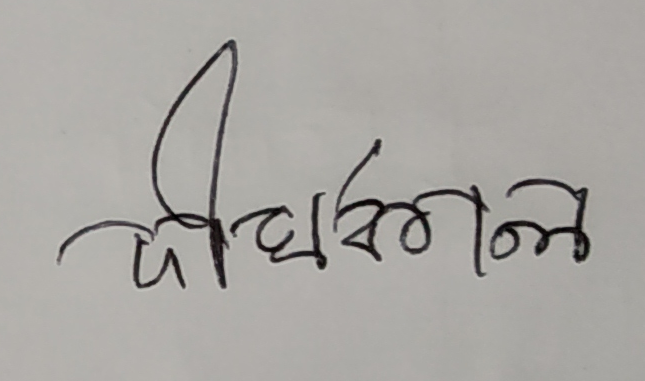 দীর্ঘকাল